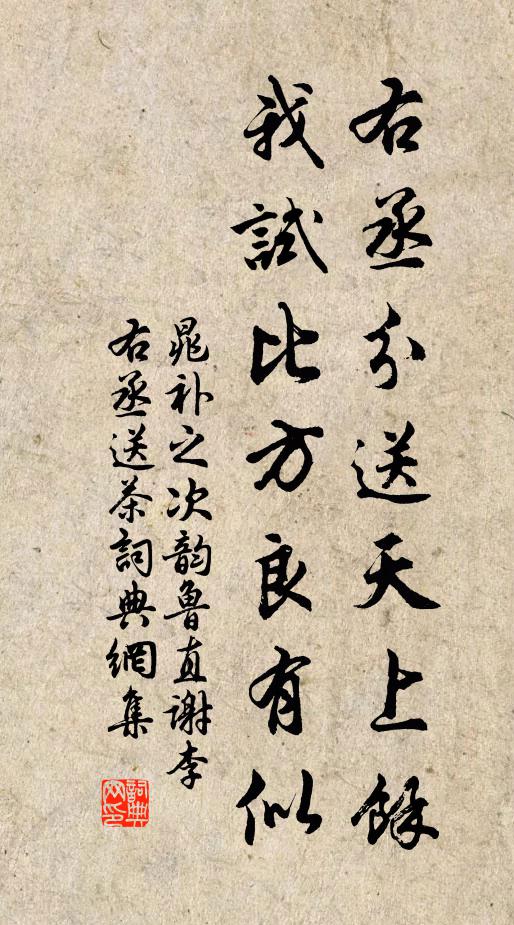 右丞分送天上餘
我試比方良有似
晁补之次韵魯直谢李
右丞送茶詞典網集
詞典网印